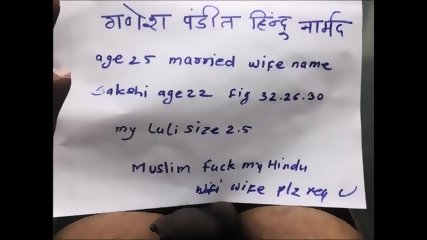 गणेश पंडीत हिन्दु नार्मद
age 25 married wife name
Sakshi age 22 fig 32.26.30
my Luli size 2.5
Muslim fuck my Hindu
wife plz req U